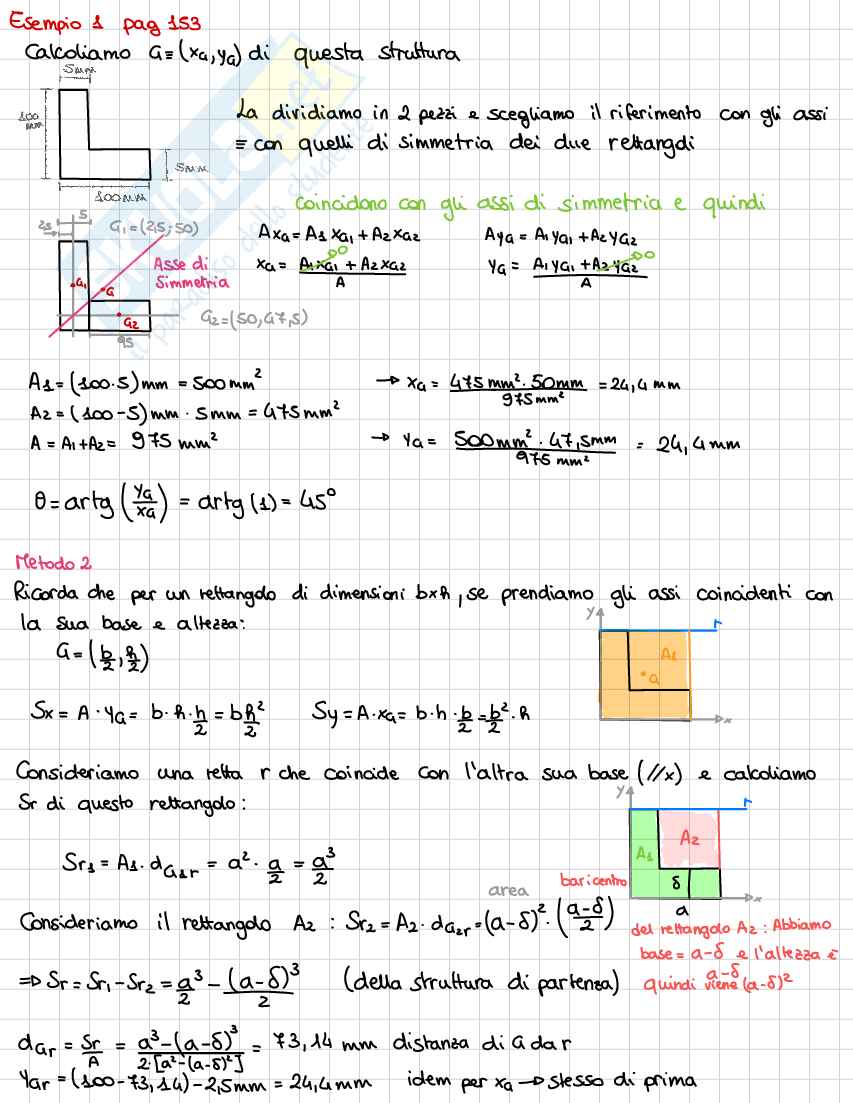 Esempio 1 pag 153
Calcoliamo G≡(xG,yG) di questa struttura
5mm
100 mm
La dividiamo in 2 pezzi e scegliamo il riferimento con gli assi
≡ con quelli di simmetria dei due rettangoli
5mm
100mm
coincidono con gli assi di simmetria e quindi
5
2,5
G1=(2,5;50)
A xG = A1 xG1 + A2 xG2
A yG = A1 yG1 + A2 yG2
Asse di Simmetria
xG = (A1 xG1 + A2 xG2)/A
0
yG = (A1 yG1 + A2 yG2)/A
0
G1
G
G2
G2=(50,47,5)
95
A1=(100·5)mm = 500mm²
→ xG = (475mm²·50mm)/(975mm²) = 24,4 mm
A2=(100-5)mm · 5mm = 475mm²
A = A1+A2 = 975 mm²
→ yG = (500mm²·47,5mm)/(975 mm²) = 24,4 mm
θ = artg (yG/xG) = artg (1) = 45°
Metodo 2
Ricorda che per un rettangolo di dimensioni bxh, se prendiamo gli assi coincidenti con
la sua base e altezza:
y
r
A1
G
x
G=(b/2, h/2)
Sx = A · yG = b·h·h/2 = bh²/2
Sy = A·xG = b·h·b/2 = b²/2·h
Consideriamo una retta r che coincide con l'altra sua base (//x) e calcoliamo
Sr di questo rettangolo:
y
r
A1
A2
δ
x
a
Sr1 = A1·dG1r = a²·a/2 = a³/2
area
baricentro
Consideriamo il rettangolo A2 : Sr2 = A2·dG2r = (a-δ)²·((a-δ)/2)
del rettangolo A2: Abbiamo
base = a-δ e l'altezza è
a-δ
quindi viene (a-δ)²
⇒ Sr = Sr1-Sr2 = a³/2 - (a-δ)³/2 (della struttura di partenza)
dGr = Sr/A = (a³-(a-δ)³)/(2·[a²-(a-δ)²]) = 73,14 mm distanza di G da r
yGr = (100-73,14)-2,5mm = 24,4mm idem per xG → stesso di prima